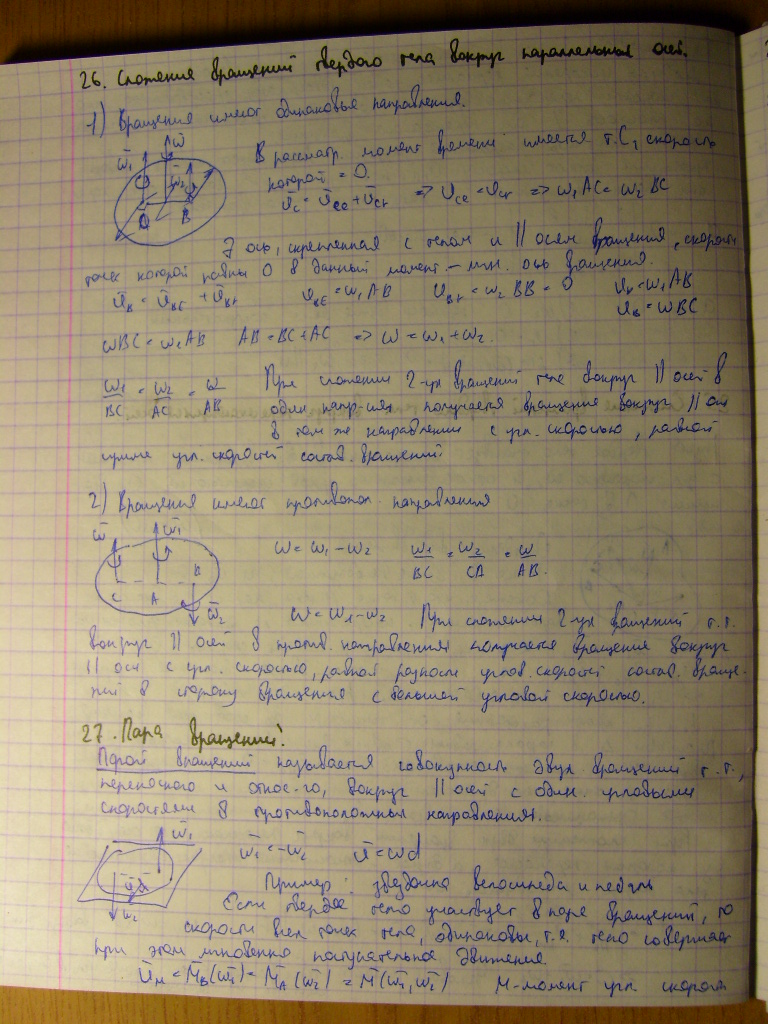 26. Сложение вращений твердого тела вокруг параллельных осей.
1) Вращения имеют одинаковые направления.
ω̄1 ω̄ ω̄2 B
В рассматр. момент времени имеется т. С, скорость
которой = 0.
ῡc = ῡce + ῡcr ⇒ υce = υcr ⇒ ω1 AC = ω2 BC
∃ ось, скрепленная с телом и || осям вращения, скорости
точек которой равны 0 в данный момент – мгн. ось вращения.
ῡB = ῡBE + ῡBr υBE = ω1 AB υBr = ω2 BB = 0 υB = ω1 AB
υB = ωBC
ωBC = ω1 AB AB = BC + AC ⇒ ω = ω1 + ω2.
ω1/BC = ω2/AC = ω/AB При сложении 2-ух вращений тела вокруг || осей в
одном напр-ии получается вращение вокруг || оси
в том же направлении с угл. скоростью, равной
сумме угл. скоростей состав. вращений
2) Вращения имеют противопол. направления
ω̄ ω̄1 B C A ω̄2
ω = ω1 – ω2 ω1/BC = ω2/CA = ω/AB.
ω = ω1 – ω2 При сложении 2-ух вращений т.т.
вокруг || осей в против. направлениях получается вращение вокруг
|| оси с угл. скоростью, равной разности углов. скоростей состав. враще-
ний в сторону вращения с большей угловой скоростью.
27. Пара вращений.
Парой вращений называется совокупность двух вращений т.т.,
переносного и относ-го, вокруг || осей с один. угловыми
скоростями в противоположных направлениях.
ω̄1 ω2
ω̄1 = -ω̄2 υ = ωd
Пример: звездочка велосипеда и педаль
Если твердое тело участвует в паре вращений, то
скорости всех точек тела, одинаковы, т.е. тело совершает
при этом мгновенно поступательное движение.
ῡM = M̄B(ω̄1) = M̄A(ω̄2) = M̄(ω̄1, ω̄2) M-момент угл. скорости